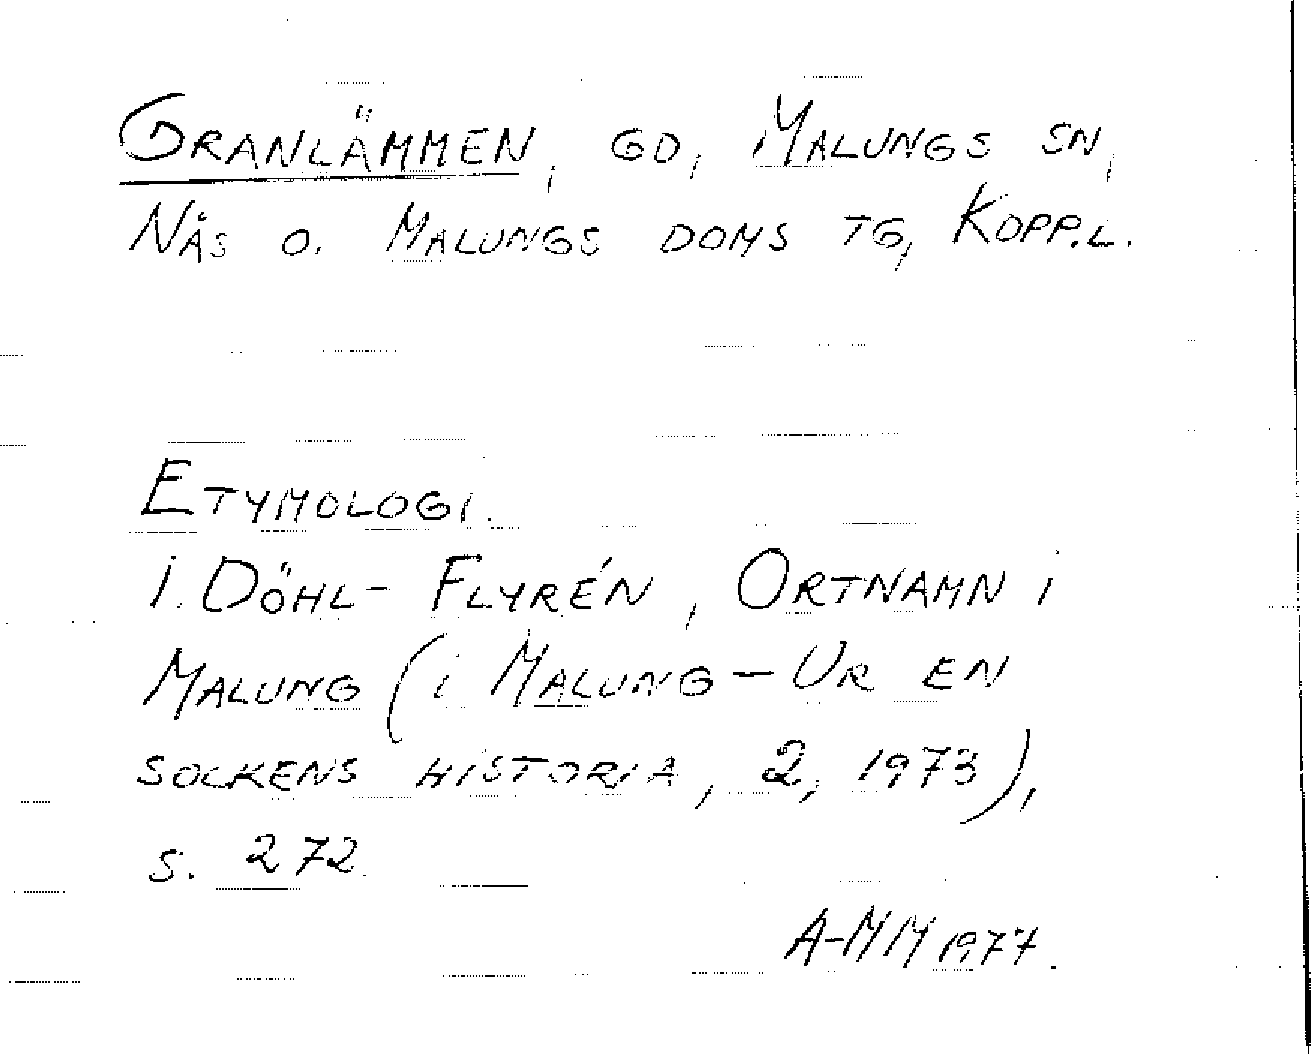 GRANLÄMMEN, GD, MALUNGS SN,
NÅS O. MALUNGS DOMS TG, KOPP.L.
ETYMOLOGI.
I. DÖHL-FLYRÉN, ORTNAMN I
MALUNG (I MALUNG - UR EN
SOCKENS HISTORIA, 2, 1973),
S. 272.
A-MM 1977.